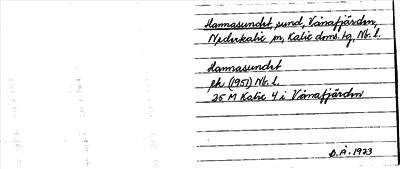 Hamnasundet, sund, Vånafjärden,
Nederkalix sn, Kalix dms.tg, Nb. l.
Hamnasundet
ek (1951) Nb. l.
25 M Kalix 4 i Vånafjärden
B.Å. 1973